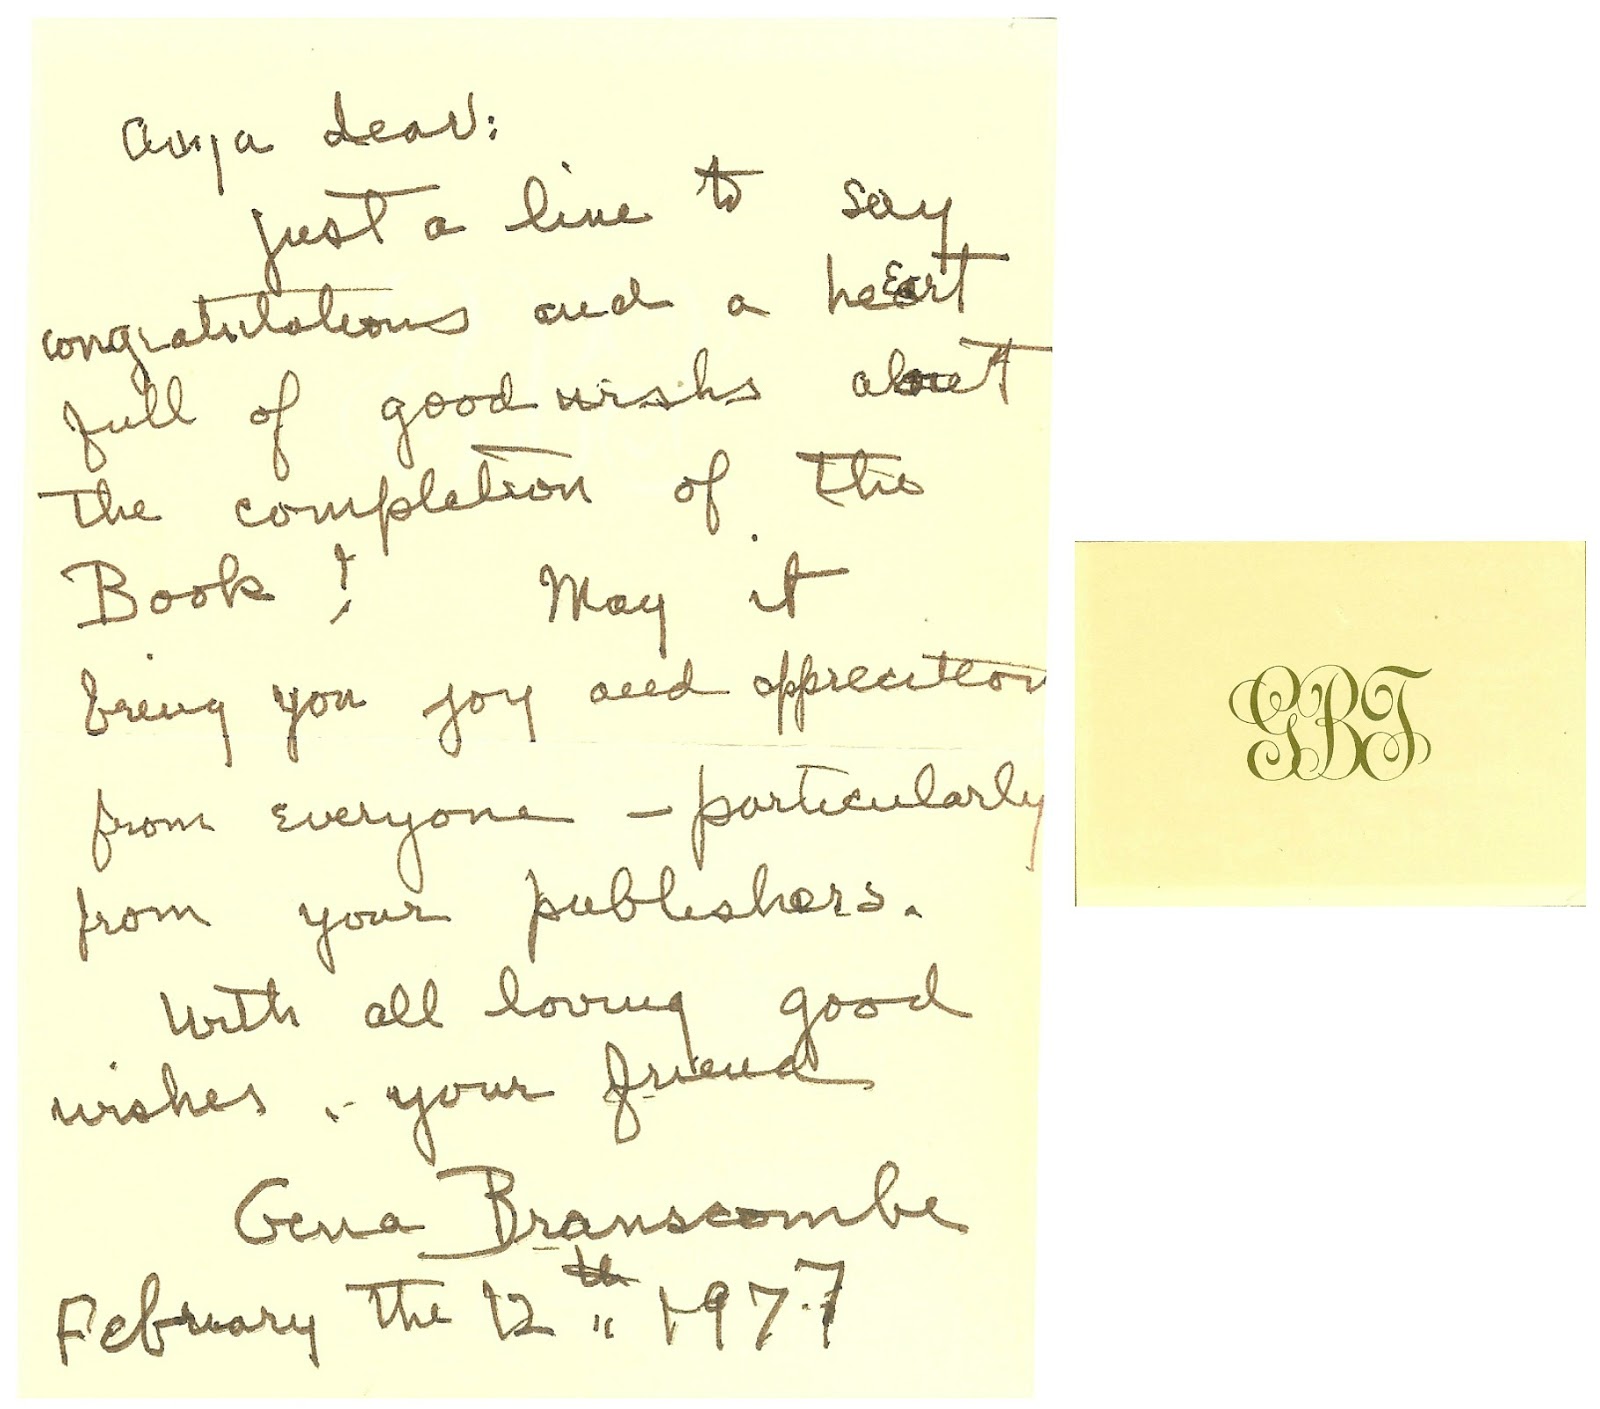 Anya dear:
just a line to say
congratulations and a heart
full of good wishs about
the completion of the
Book! May it
bring you joy and appreciation
from everyone – particularly
from your publishers.
With all loving good
wishes, – your friend
Gena Branscombe
February the 12th 1977
GBT